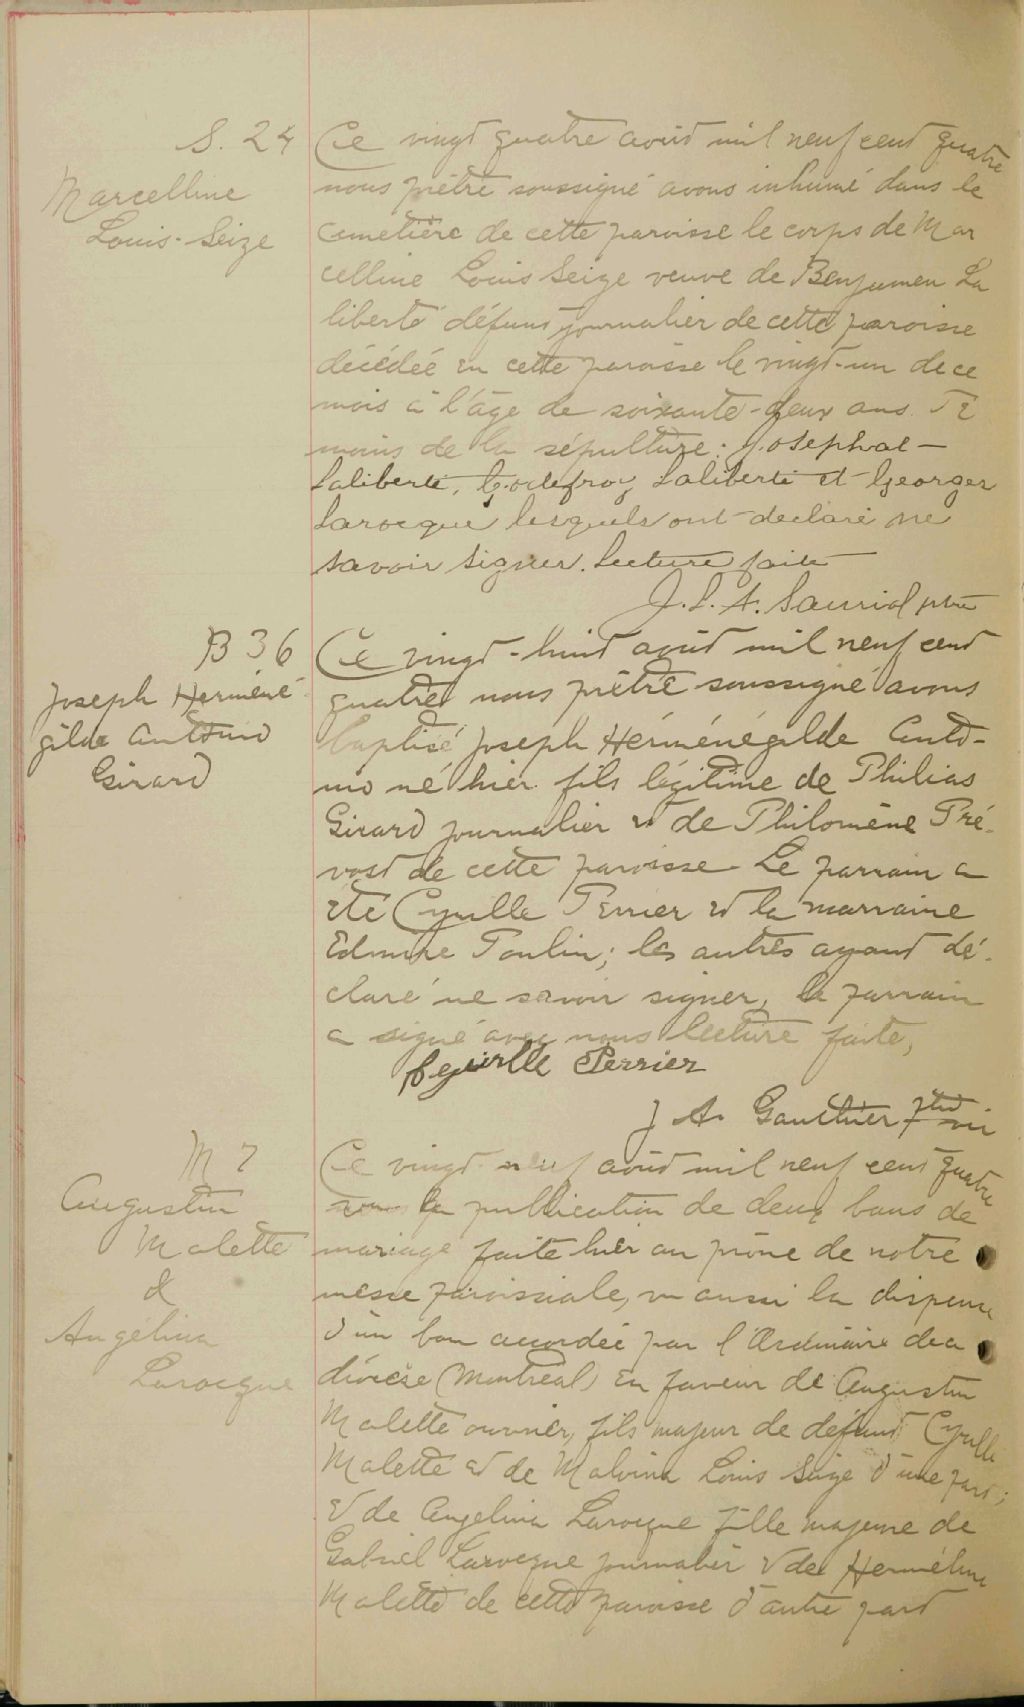 S. 24
Marcelline
Louis-Seize
Ce vingt quatre août mil neuf cent quatre
nous prêtre soussigné avons inhumé dans le
cimetière de cette paroisse le corps de Mar
celline Louis Seize veuve de Benjamen La
liberté défunt journalier de cette paroisse
décédée en cette paroisse le vingt-un de ce
mois à l'âge de soixante-deux ans. Té
moins de la sépulture: Josephat
Laliberté, Godefroy Laliberté et Georges
Larocque lesquels ont declaré ne
savoir signer. Lecture faite
J. L. A. Sauriol ptre
B 36
Joseph Herméné
gilde Antonio
Girard
Ce vingt-huit août mil neuf cent
quatre nous prêtre soussigné avons
baptisé Joseph Herménégilde Anto-
nio né hier fils légitime de Philias
Girard journalier et de Philomène Pré-
vost de cette paroisse. Le parrain a
été Cyrille Perrier et la marraine
Poulin; les autres ayant dé-
claré ne savoir signer, le parrain
a signé avec nous lecture faite,
Cyrille Perrier
J A. Gauthier ptre vic
M 7
Augustin
Malette
&
Angélina
Larocque
Ce vingt-neuf août mil neuf cent quatre
la publication de deux bans de
mariage faite hier au prône de notre
messe paroissiale, vu aussi la dispense
d'un ban accordée par l'Ordinaire de ce
diocèse (Montréal) en faveur de Augustin
Malette ouvrier, fils majeur de défunt Cyrille
Malette et de Malvina Louis Seize d'une part;
et de Angelina Larocque fille majeure de
Gabriel Larocque journalier et de Herméline
Malette de cette paroisse d'autre part